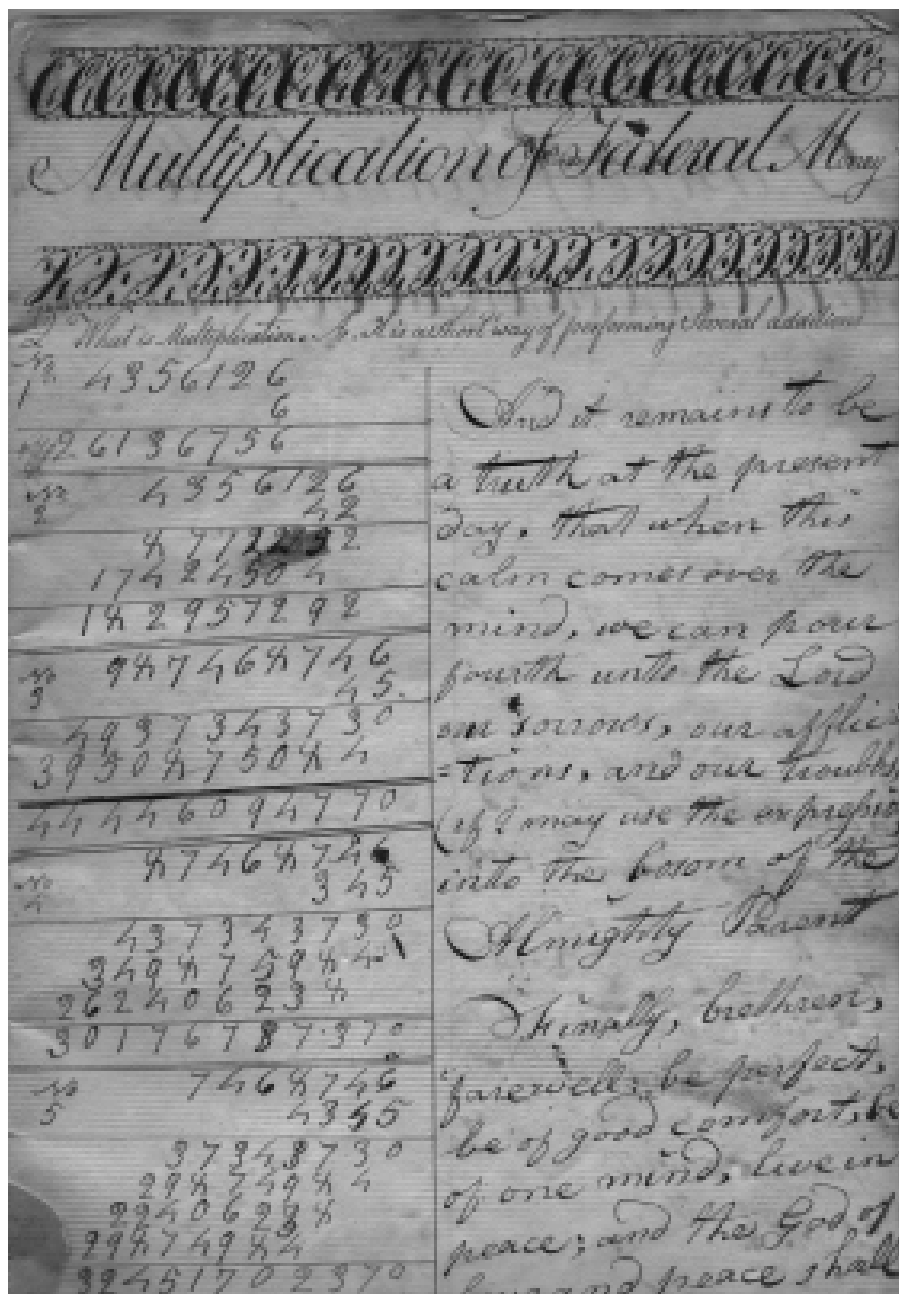 Multiplication of Federal Money
Q What is Multiplication. A. It is a short way of performing Several additions
No 1 4356126
6
26136756
No 2 4356126
42
17424504
182957292
No 3 987468746
45
4937343730
3950875084
444460 94770
No 4 87468746
345
437343730
349874984
262406238
301767 87370
No 5 7468746
4345
37343730
29874984
22406238
29874984
32451702370
And it remains to be
a truth at the present
day, that when this
calm comes over the
mind, we can pour
fourth unto the Lord
our sorrows, our afflic
=tions, and our troubles
(if I may use the expression
into the bosom of the
Almighty Parent
Finally, brethren,
farewell; be perfect,
be of good comfort, be
of one mind, live in
peace; and the God of
love and peace shall